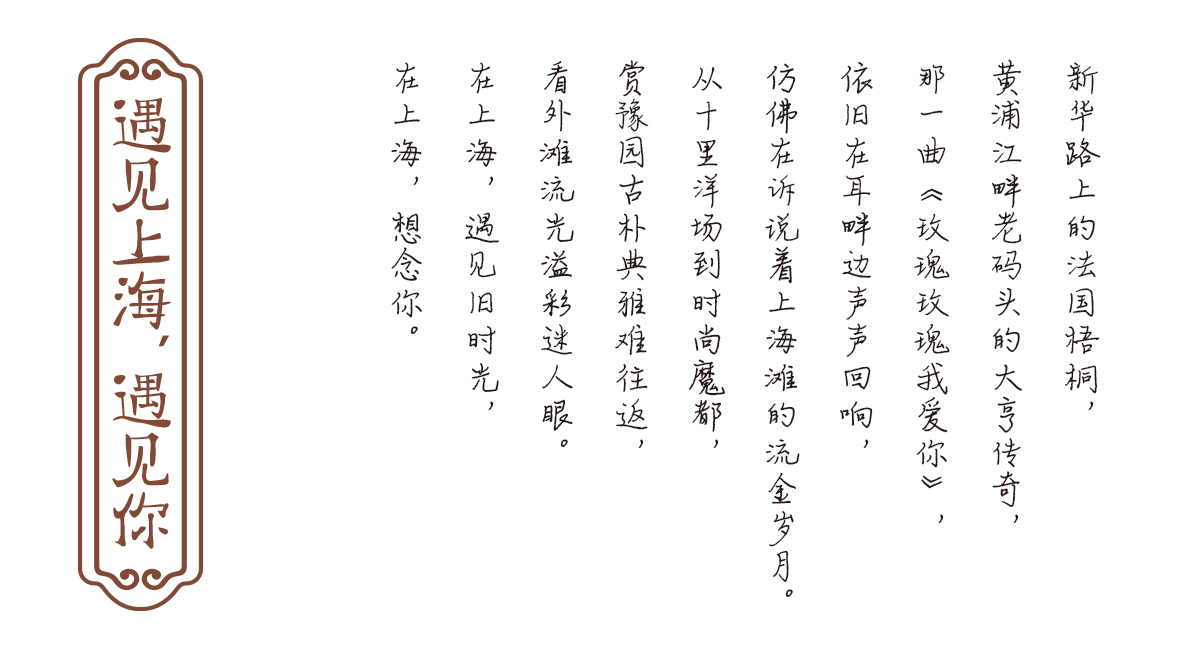 新华路上的法国梧桐，
黄浦江畔老码头的大亨传奇，
那一曲《玫瑰玫瑰我爱你》，
依旧在耳畔边声声回响，
仿佛在诉说着上海滩的流金岁月。
从十里洋场到时尚魔都，
赏豫园古朴典雅难往返，
看外滩流光溢彩迷人眼。
在上海，遇见旧时光，
在上海，想念你。
遇见上海，遇见你